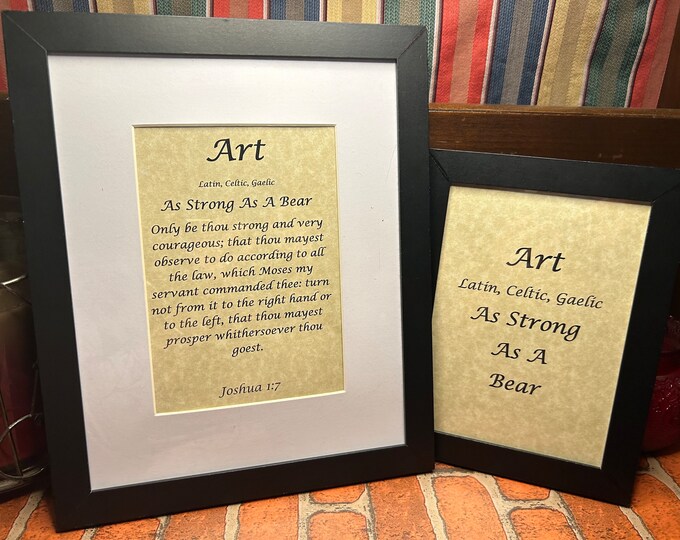 Art
Latin, Celtic, Gaelic
As Strong As A Bear
Only be thou strong and very
courageous; that thou mayest
observe to do according to all
the law, which Moses my
servant commanded thee: turn
not from it to the right hand or
to the left, that thou mayest
prosper whithersoever thou
goest.
Joshua 1:7
Art
Latin, Celtic, Gaelic
As Strong
As A
Bear